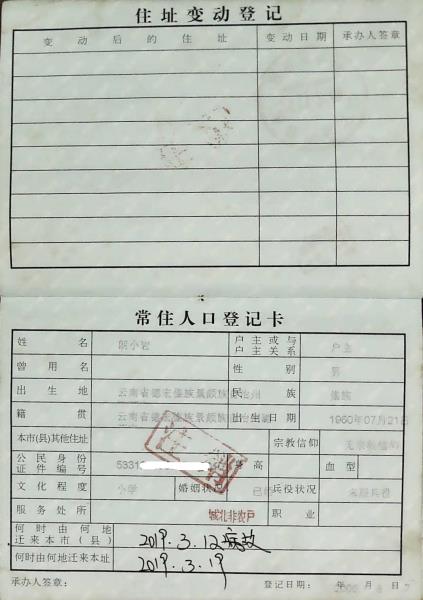 住址变动登记
变动后的住址 变动日期 承办人签章
常住人口登记卡
姓名 户主或与户主关系 户主
曾用名 性别 男
出生地 云南省德宏傣族景颇族自治州 民族 傣族
籍贯 云南省德宏傣族景颇族自治州 出生日期 1960年07月21日
本市(县)其他住址 宗教信仰 无宗教信仰
公民身份证件编号 5331 身高 血型
文化程度 小学 婚姻状况 已 兵役状况 未服兵役
服务处所 城北非农户 职业
何时由何地迁来本市(县) 2019.3.12病故
何时由何地迁来本址 2019.3.19
注销
承办人签章： 登记日期： 年 月 日